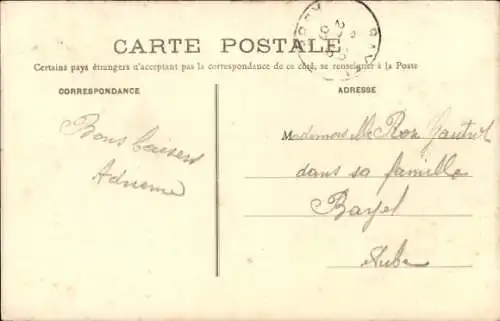 CARTE POSTALE
Certains pays étrangers n'acceptant pas la correspondance de ce côté, se renseigner à la Poste
CORRESPONDANCE
ADRESSE
Bons baisers
Adrienne
Mademoiselle Rose
dans sa famille
Bayel
Aube